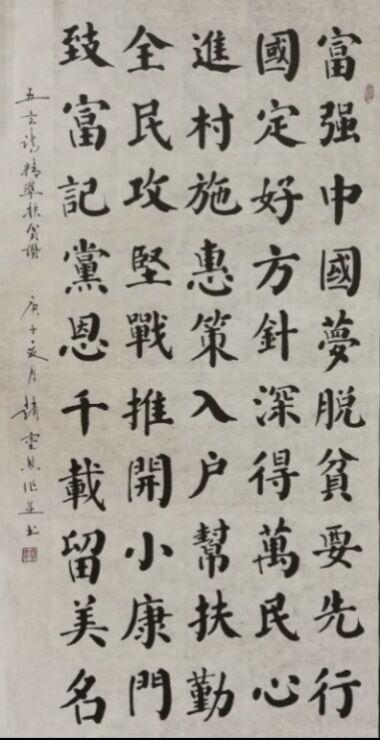 富强中國夢脱貧要先行
國定好方針深得萬民心
進村施惠策入户幫扶勤
全民攻堅戰推開小康門
致富記黨恩千載留美名
五言詩精準扶貧讚 庚子夏月趙靈恩作並书